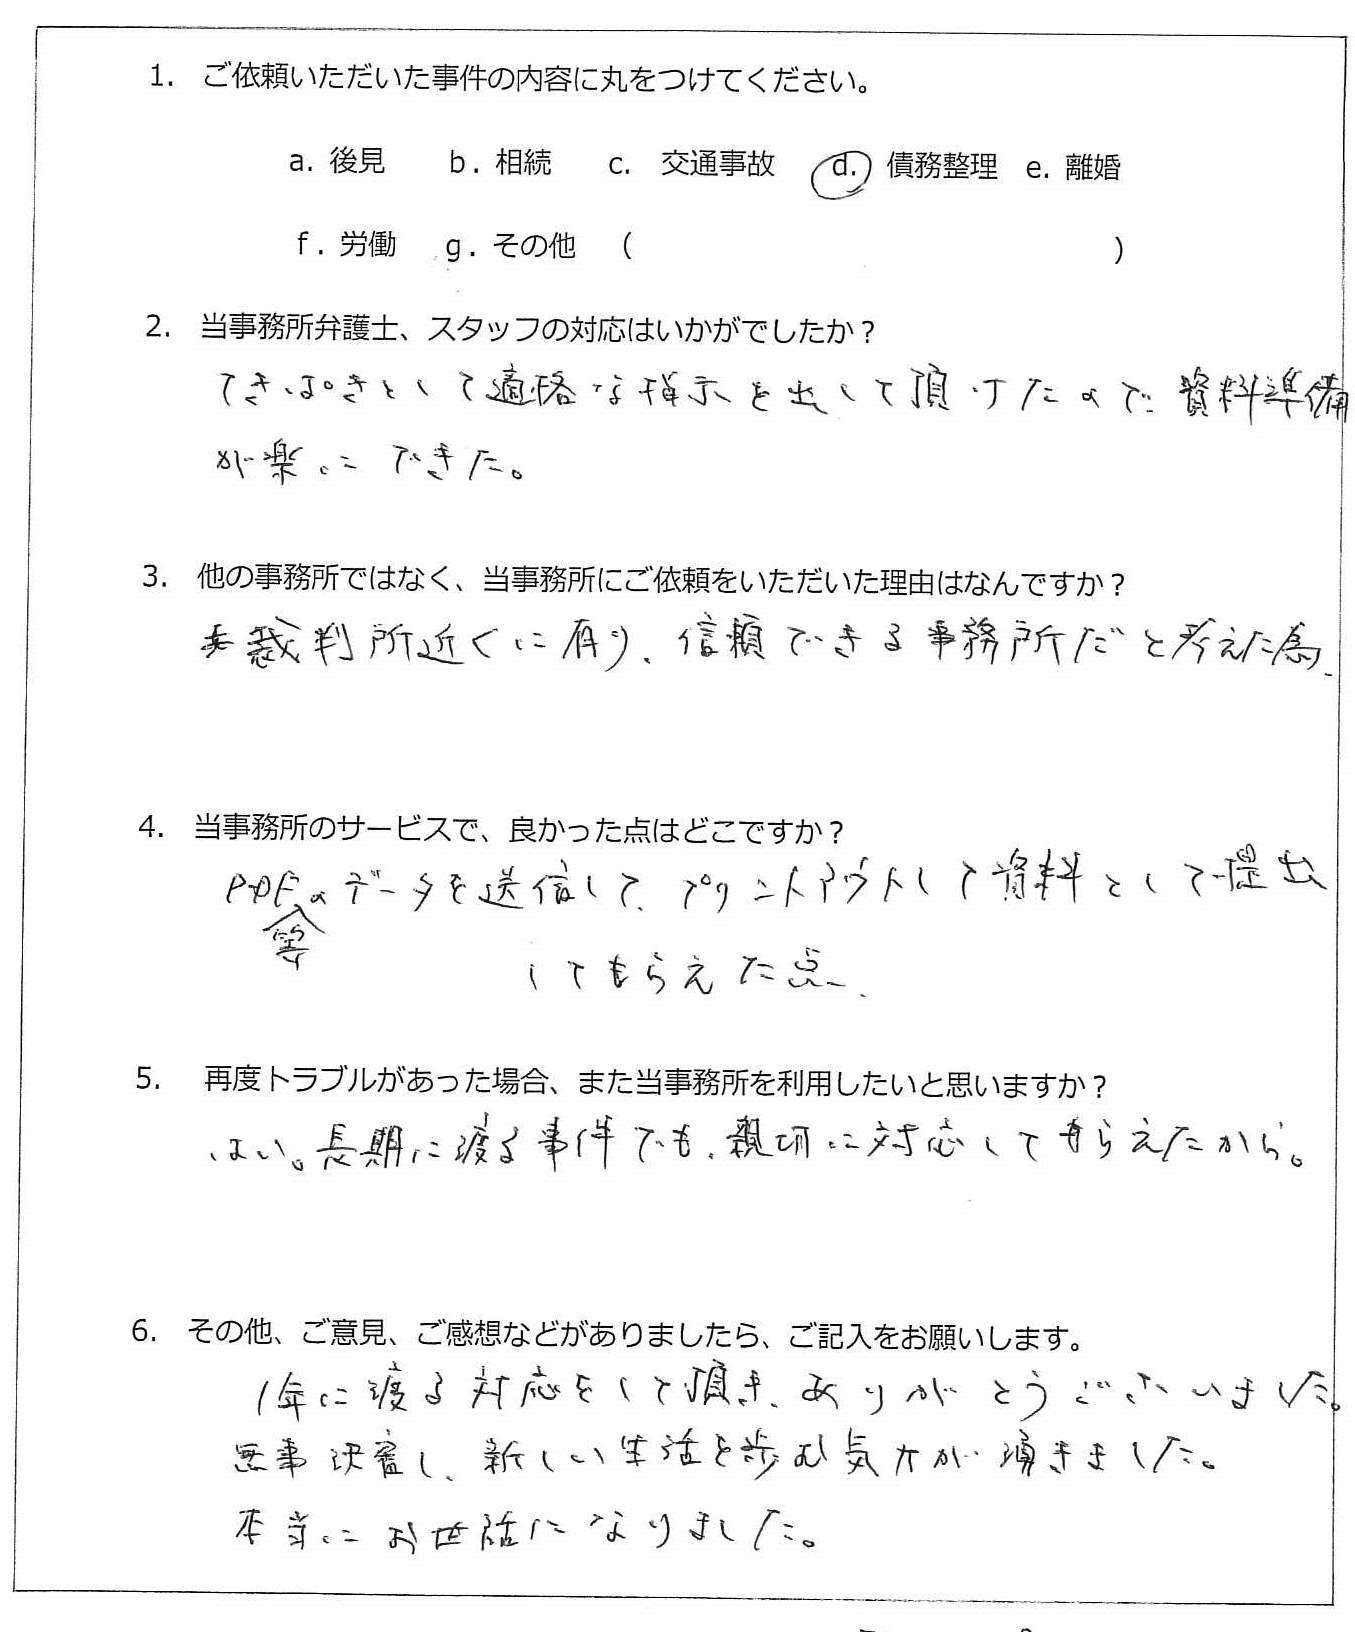 1. ご依頼いただいた事件の内容に丸をつけてください。
a. 後見 b. 相続 c. 交通事故 d. 債務整理 e. 離婚
f. 労働 g. その他 ( )
2. 当事務所弁護士、スタッフの対応はいかがでしたか？
てきぱきとして適格な指示を出して頂けたので、資料準備
が楽にできた。
3. 他の事務所ではなく、当事務所にご依頼をいただいた理由はなんですか？
裁判所近くに有り、信頼できる事務所だと考えた為、
4. 当事務所のサービスで、良かった点はどこですか？
PDF等のデータを送信して、プリントアウトして資料として提出
してもらえた点、
5. 再度トラブルがあった場合、また当事務所を利用したいと思いますか？
はい。長期に渡る事件でも、親切に対応してもらえたから。
6. その他、ご意見、ご感想などがありましたら、ご記入をお願いします。
1年に渡る対応をして頂き、ありがとうございました。
無事決審し、新しい生活を歩む気力が湧きました。
本当にお世話になりました。